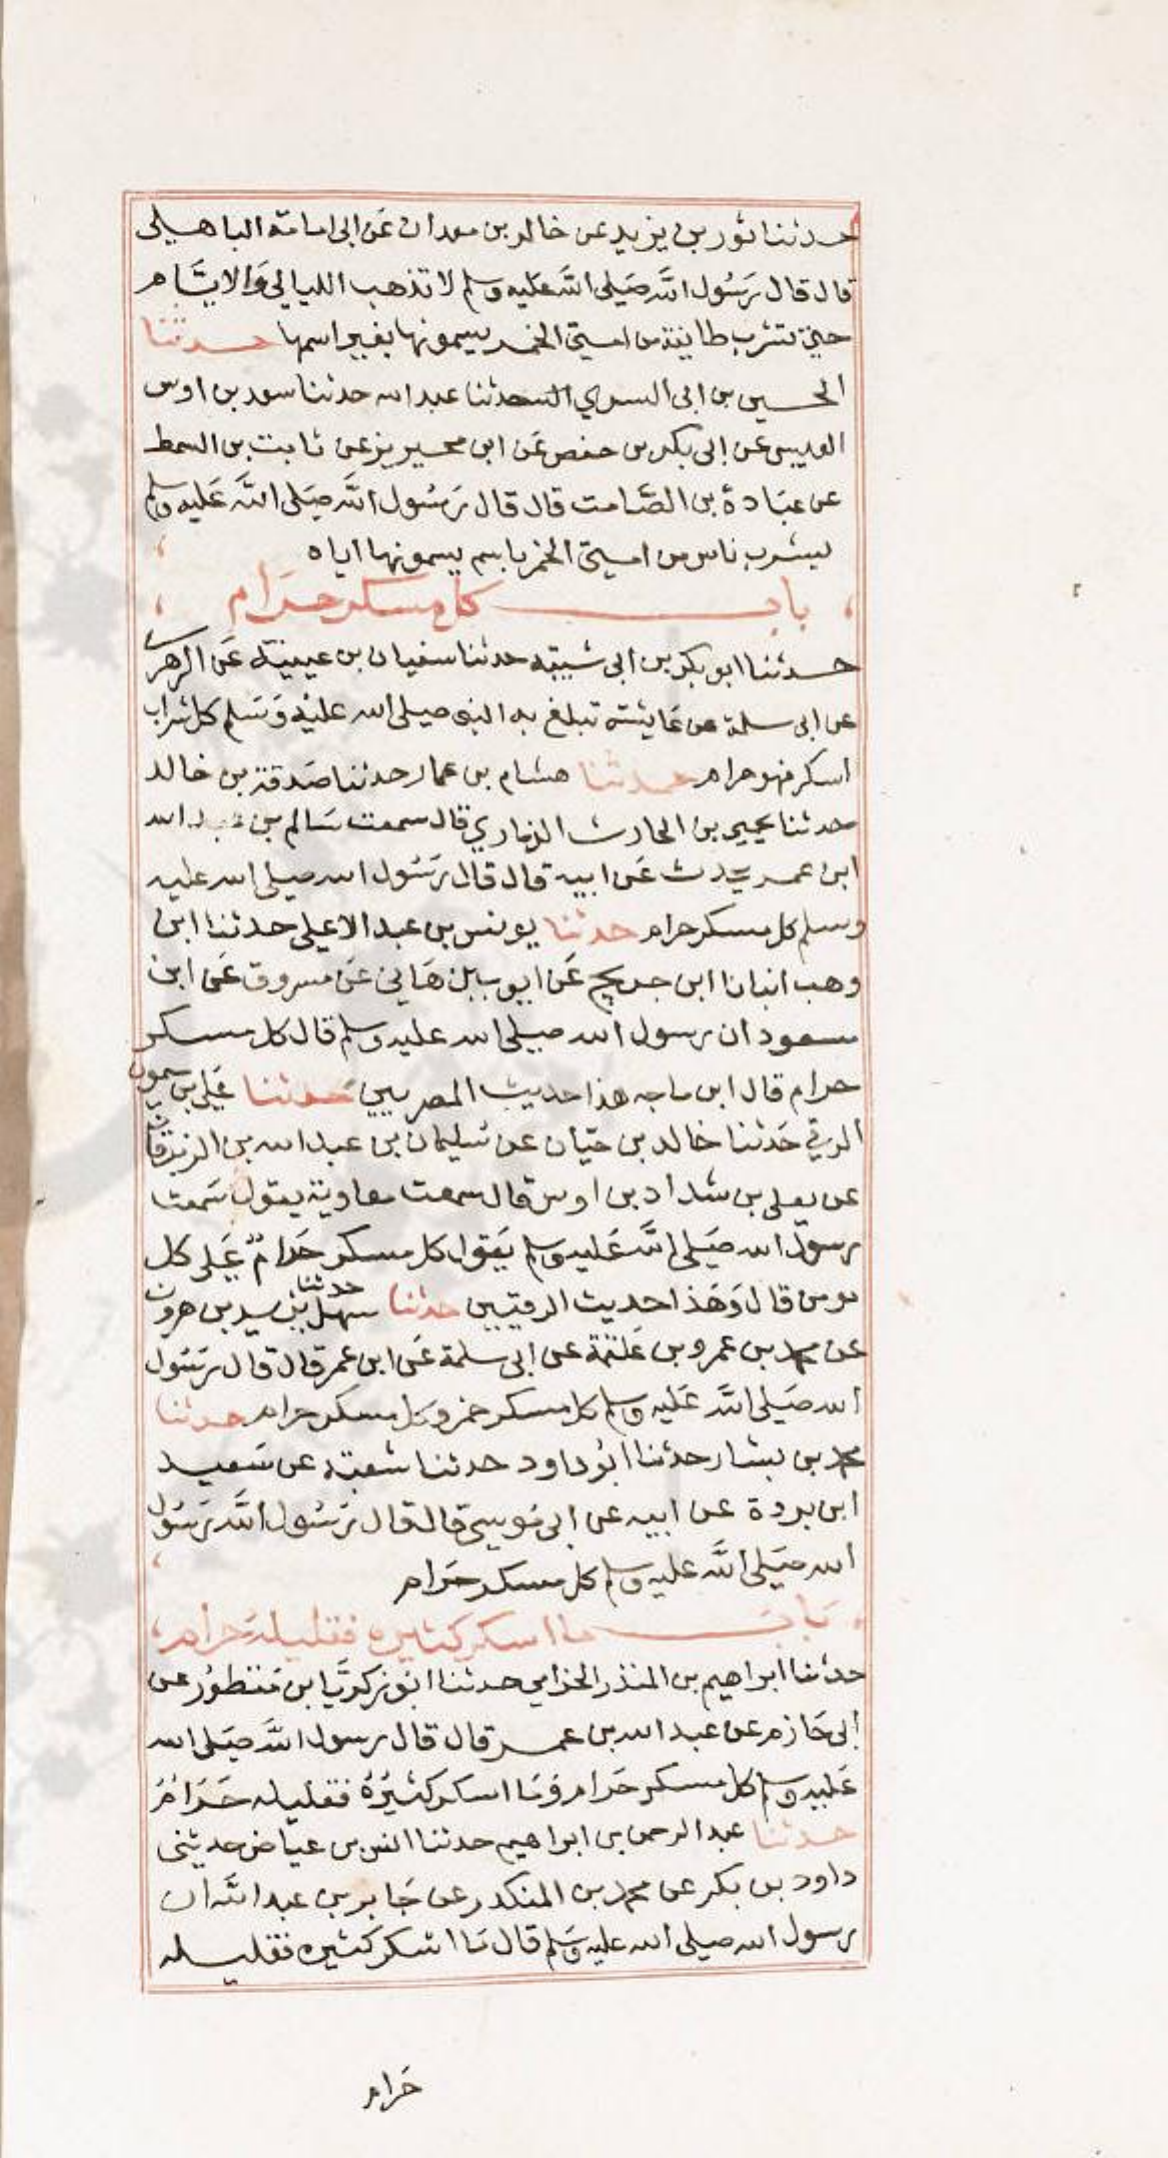 حدثنا ثور بن يزيد عن خالد بن معدان عن ابى امامة الباهلى
قال قال رسول الله صلى الله عليه وسلم لا تذهب الليالي والايام
حتى تشرب طايفة من امتى الخمر يسمونها بغير اسمها حدثنا
الحسين بن ابى السري حدثنا عبد الله حدثنا سعد بن اوس
العبسى عن ابى بكر بن حفص عن ابن محيريز عن ثابت بن السمط
عن عبادة بن الصامت قال قال رسول الله صلى الله عليه وسلم
ليشرب ناس من امتى الخمر باسم يسمونها اياه
باب كل مسكر حرام
حدثنا ابو بكر بن ابى شيبة حدثنا سفيان بن عيينة عن الزهرى
عن ابى سلمة عن عايشة تبلغ به النبى صلى الله عليه وسلم كل شراب
اسكر فهو حرام حدثنا هشام بن عمار حدثنا صدقة بن خالد
حدثنا يحيى بن الحارث الذماري قال سمعت سالم بن عبد الله
ابن عمر يحدث عن ابيه قال قال رسول الله صلى الله عليه
وسلم كل مسكر حرام حدثنا يونس بن عبد الاعلى حدثنا ابن
وهب انبانا ابن جريج عن ايوب بن هانى عن مسروق عن ابن
مسعود ان رسول الله صلى الله عليه وسلم قال كل مسكر
حرام قال ابن ماجه هذا حديث المصريين حدثنا على بن ميمون
الرقي حدثنا خالد بن حيان عن سليمان بن عبد الله بن الزبرقان
عن يعلى بن شداد بن اوس قال سمعت معاوية يقول سمعت
رسول الله صلى الله عليه وسلم يقول كل مسكر حرام على كل
مومن قال وهذا حديث الرقيين حدثنا سهل حدثنا يزيد بن هرون
عن محمد بن عمرو بن علقمة عن ابى سلمة عن ابن عمر قال قال رسول
الله صلى الله عليه وسلم كل مسكر خمر وكل مسكر حرام حدثنا
محمد بن بشار حدثنا ابو داود حدثنا شعبة عن سعيد
ابن بردة عن ابيه عن ابى موسى قال قال رسول الله رسول
الله صلى الله عليه وسلم كل مسكر حرام
باب ما اسكر كثيره فقليله حرام
حدثنا ابراهيم بن المنذر الحزامي حدثنا ابو زكريا ابن منظور عن
ابى حازم عن عبد الله بن عمر قال قال رسول الله صلى الله
عليه وسلم كل مسكر حرام وما اسكر كثيره فقليله حرام
حدثنا عبد الرحمن بن ابراهيم حدثنا انس بن عياض حدثنى
داود بن بكر عن محمد بن المنكدر عن جابر بن عبد الله ان
رسول الله صلى الله عليه وسلم قال ما اسكر كثيره فقليله
حرام